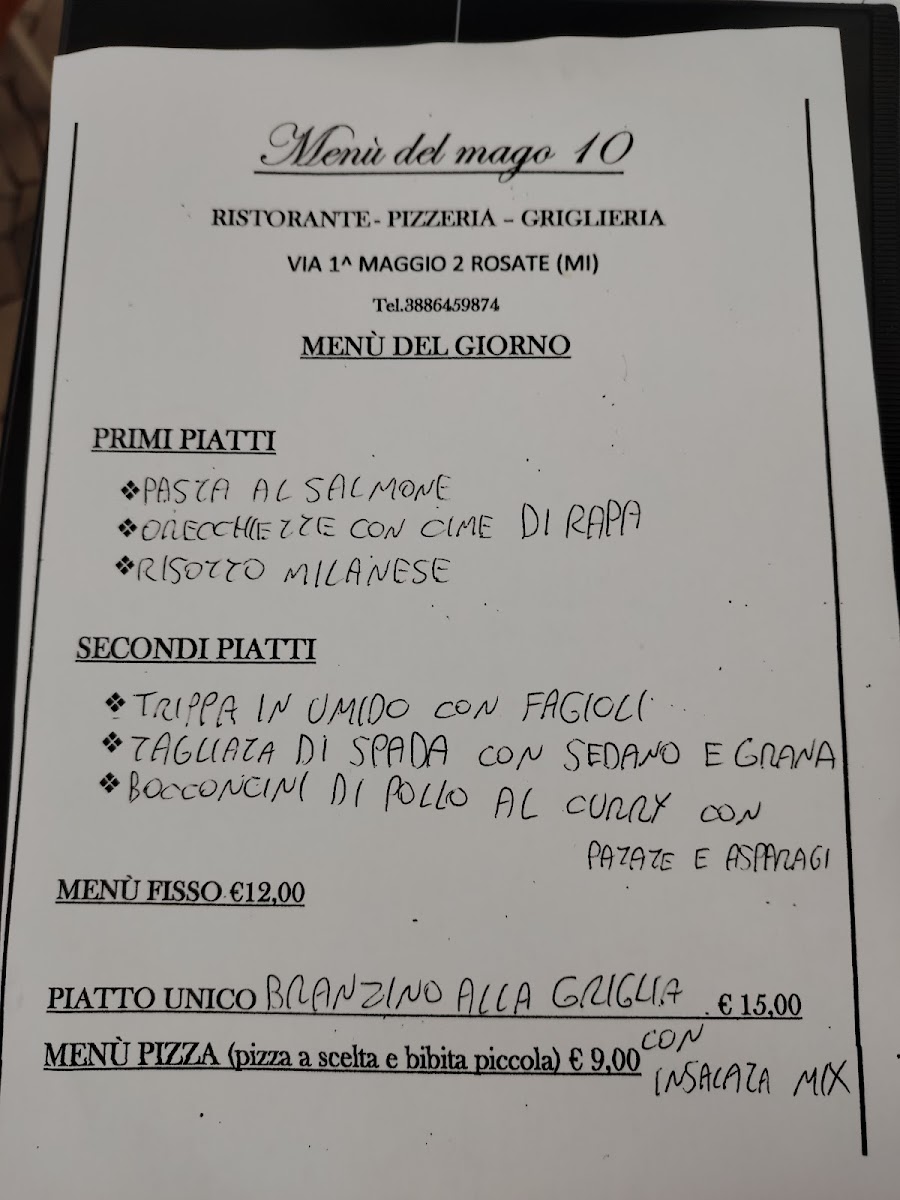 Menù del mago 10
RISTORANTE- PIZZERIA – GRIGLIERIA
VIA 1^ MAGGIO 2 ROSATE (MI)
Tel.3886459874
MENÙ DEL GIORNO
PRIMI PIATTI
❖PASTA AL SALMONE
❖ORECCHIETTE CON CIME DI RAPA
❖RISOTTO MILANESE
SECONDI PIATTI
❖TRIPPA IN UMIDO CON FAGIOLI
❖TAGLIATA DI SPADA CON SEDANO E GRANA
❖BOCCONCINI DI POLLO AL CURRY CON
PATATE E ASPARAGI
MENÙ FISSO €12,00
PIATTO UNICO BRANZINO ALLA GRIGLIA € 15,00
CON
INSALATA MIX
MENÙ PIZZA (pizza a scelta e bibita piccola) € 9,00